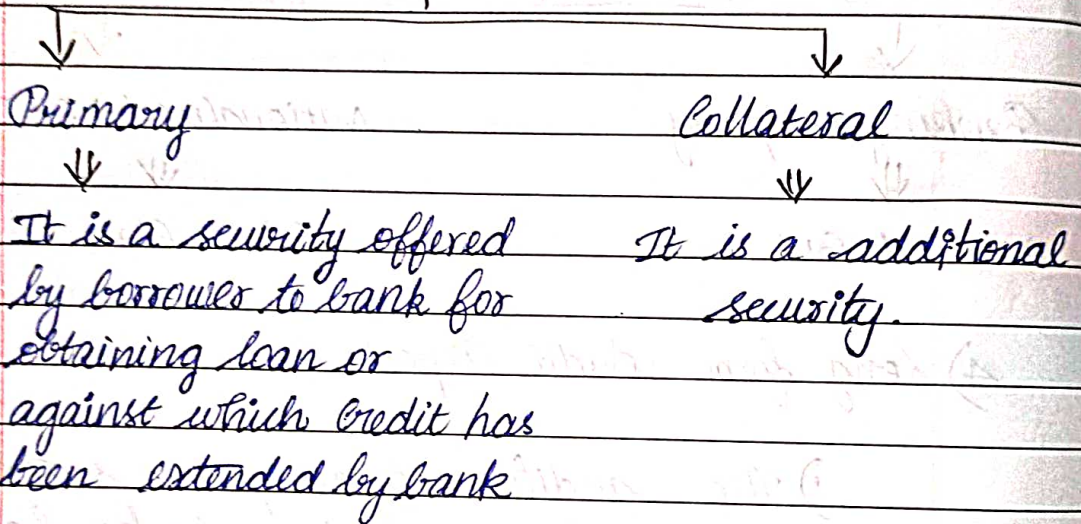 Primary
Collateral
It is a security offered
by borrower to bank for
obtaining loan or
against which credit has
been extended by bank
It is a additional
security.